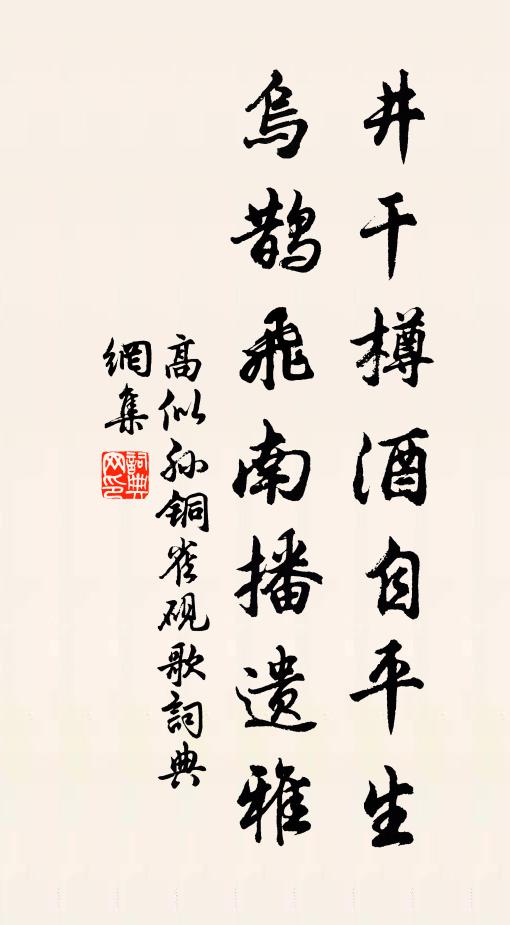 井干樽酒自平生
烏鵲飛南播遗雅
高似孙铜雀砚歌詞典
網集
詞典网印